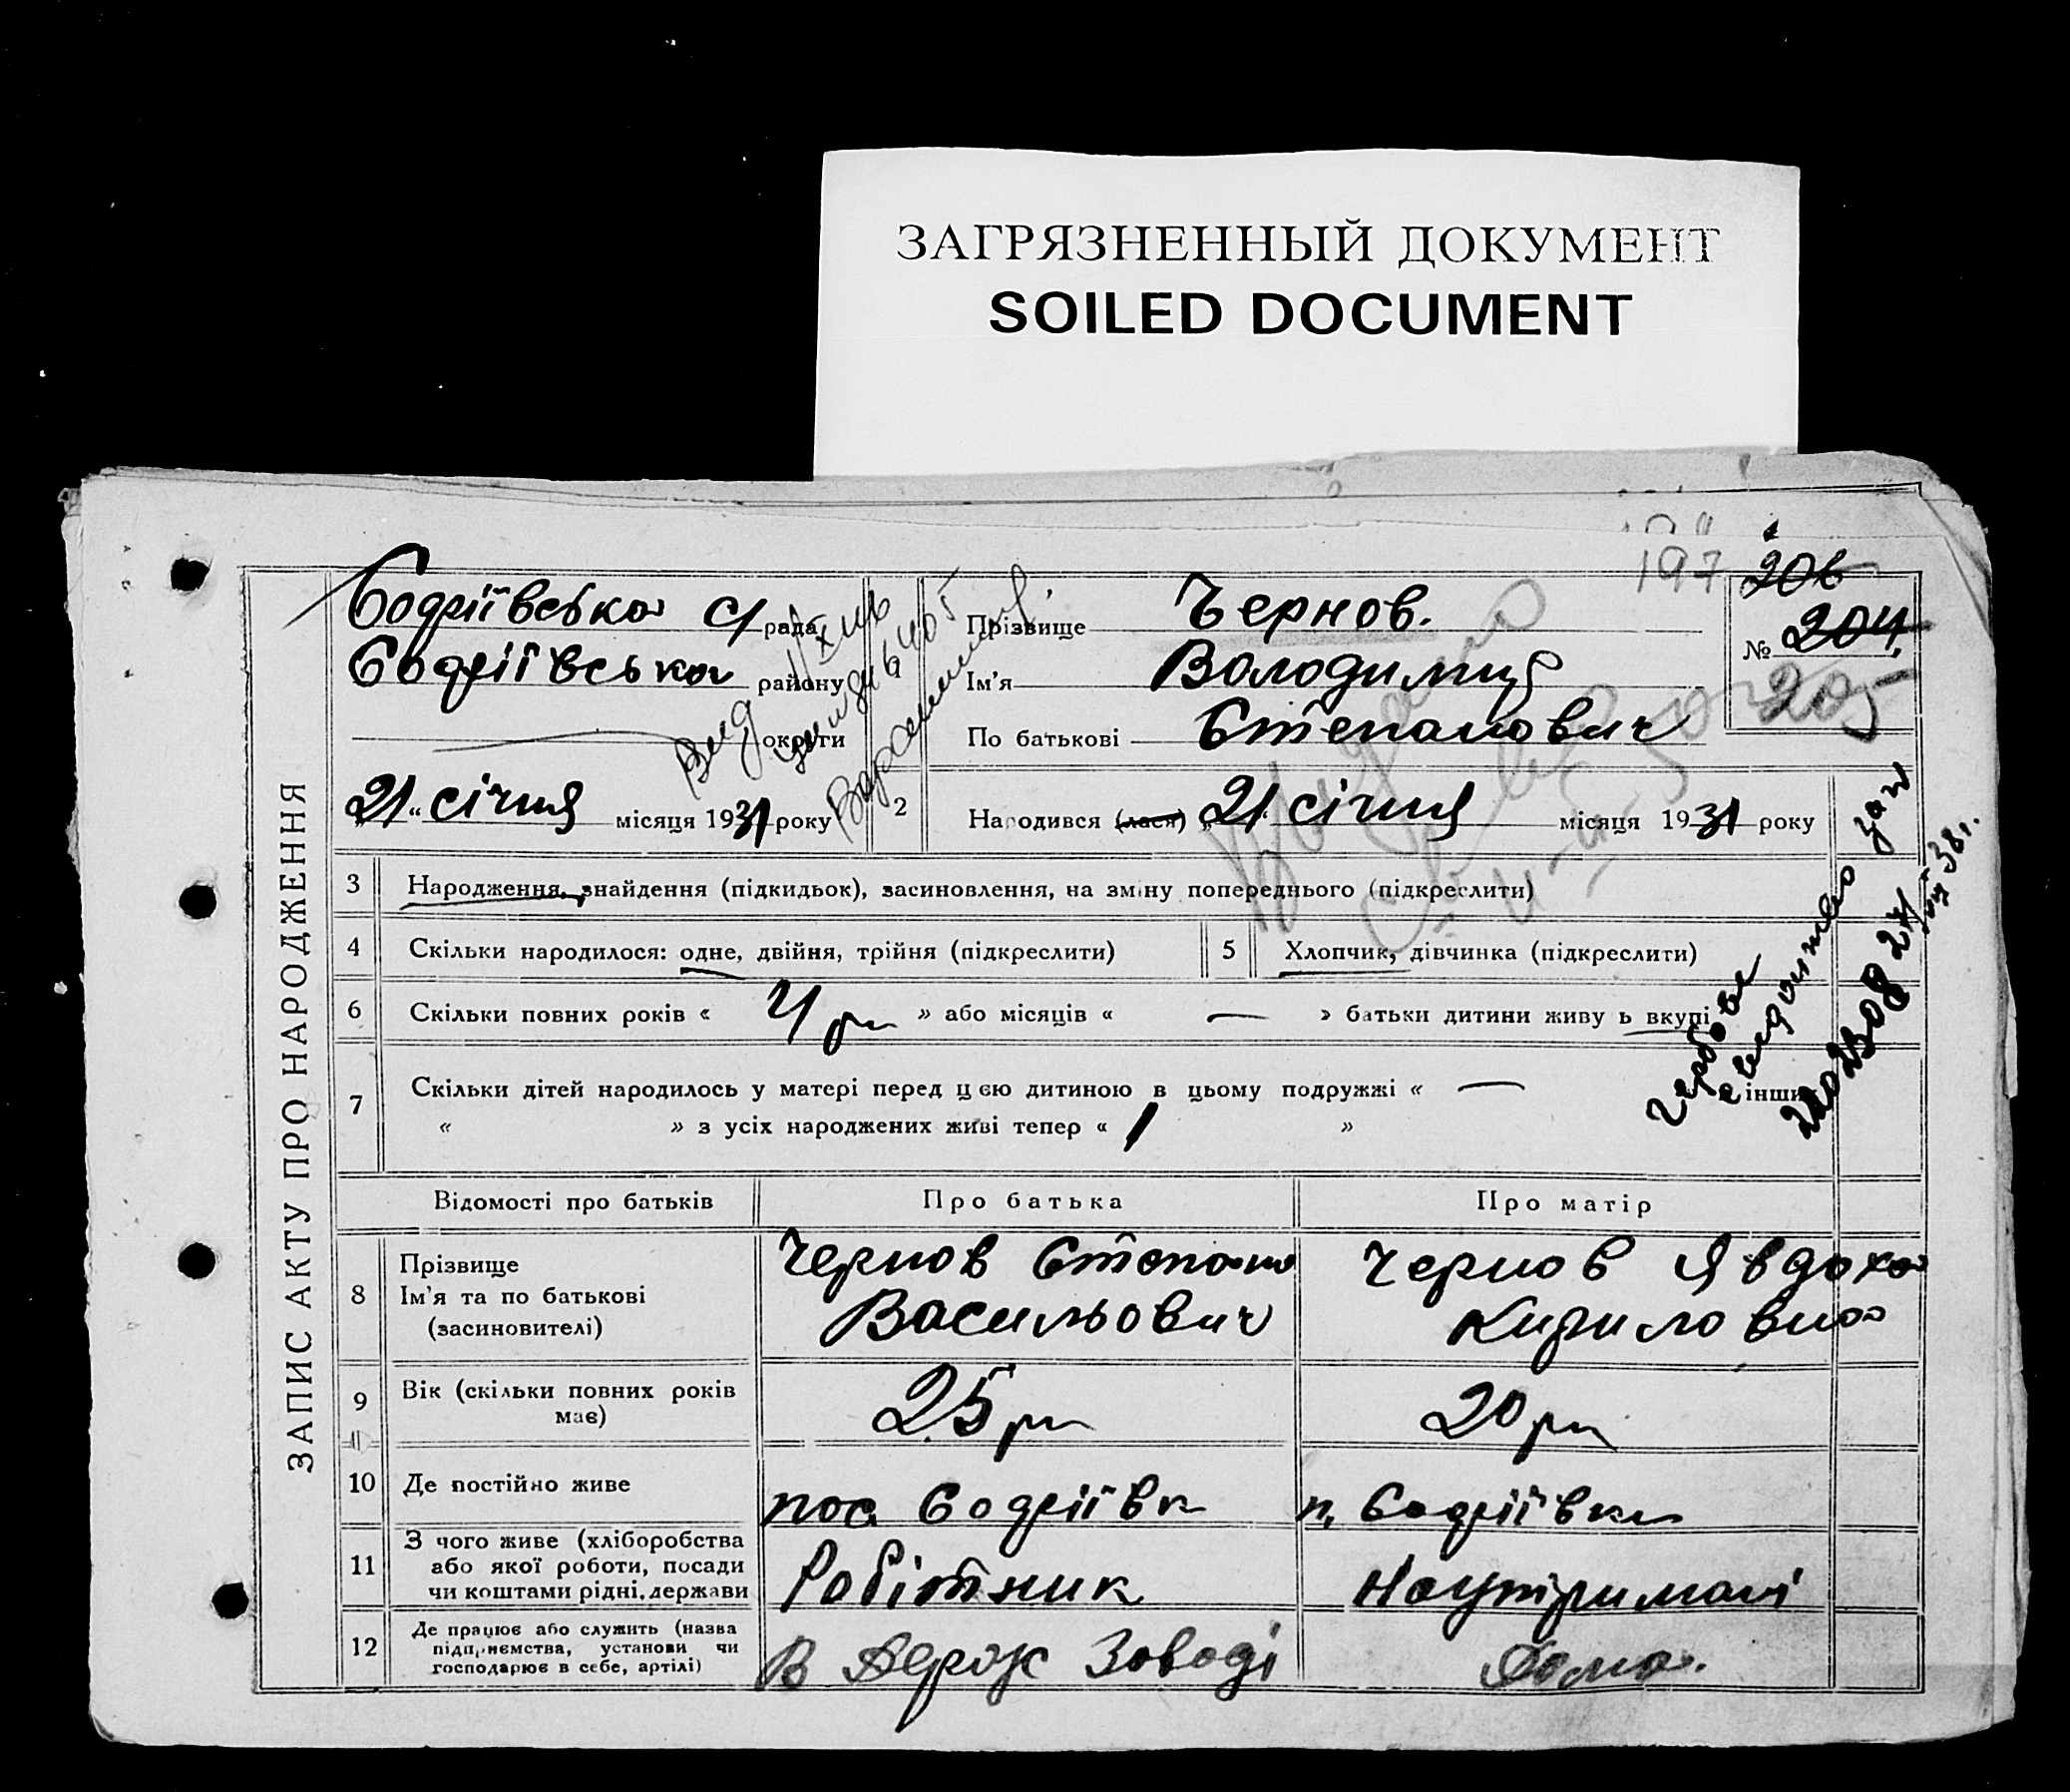 ЗАГРЯЗНЕННЫЙ ДОКУМЕНТ
SOILED DOCUMENT
197 206
ЗАПИС АКТУ ПРО НАРОДЖЕННЯ
с/рада
району
округи
„21“ січня місяця 1931 року
2
Прізвище Чернов.
Ім'я Володимир
По батькові Степанович
№ 204
205
Народився (лася) „21 січня місяця 1931 року
3 Народження, знайдення (підкидьок), засиновлення, на зміну попереднього (підкреслити)
4 Скільки народилося: одне, двійня, трійня (підкреслити)
5 Хлопчик, дівчинка (підкреслити)
6 Скільки повних років « » або місяців « — » батьки дитини живу ь вкупі
7 Скільки дітей народилось у матері перед цєю дитиною в цьому подружжі « — інши
« » з усіх народжених живі тепер « 1 »
Відомості про батьків
Про батька
Про матір
8 Прізвище
Ім'я та по батькові
(засиновителі)
Чернов Степан
Васильович
Чернов Явдоха
Кириловна
9 Вік (скільки повних років
має)
25 рк
20 рк
10 Де постійно живе
пос.
п.
11 З чого живе (хліборобства
або якої роботи, посади
чи коштами рідні, держави
Робітник
На утримані
12 Де працює або служить (назва
підприємства, установи чи
господарює в себе, артілі)
В Держ Заводі
Дома.